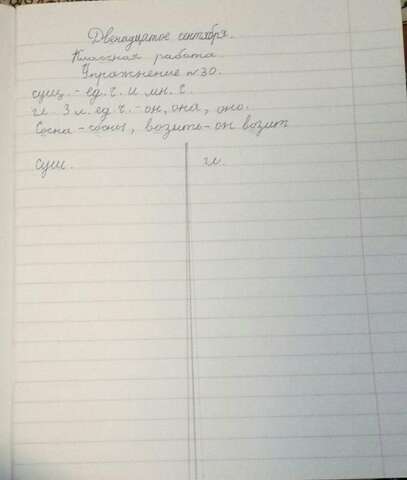 Двенадцатое сентября.
Классная работа
Упражнение №30.
сущ. - ед. ч. и мн. ч.
гл. 3 л. ед. ч. - он, она, оно.
Сосна - сосны, возить - он возит
Сущ. гл.